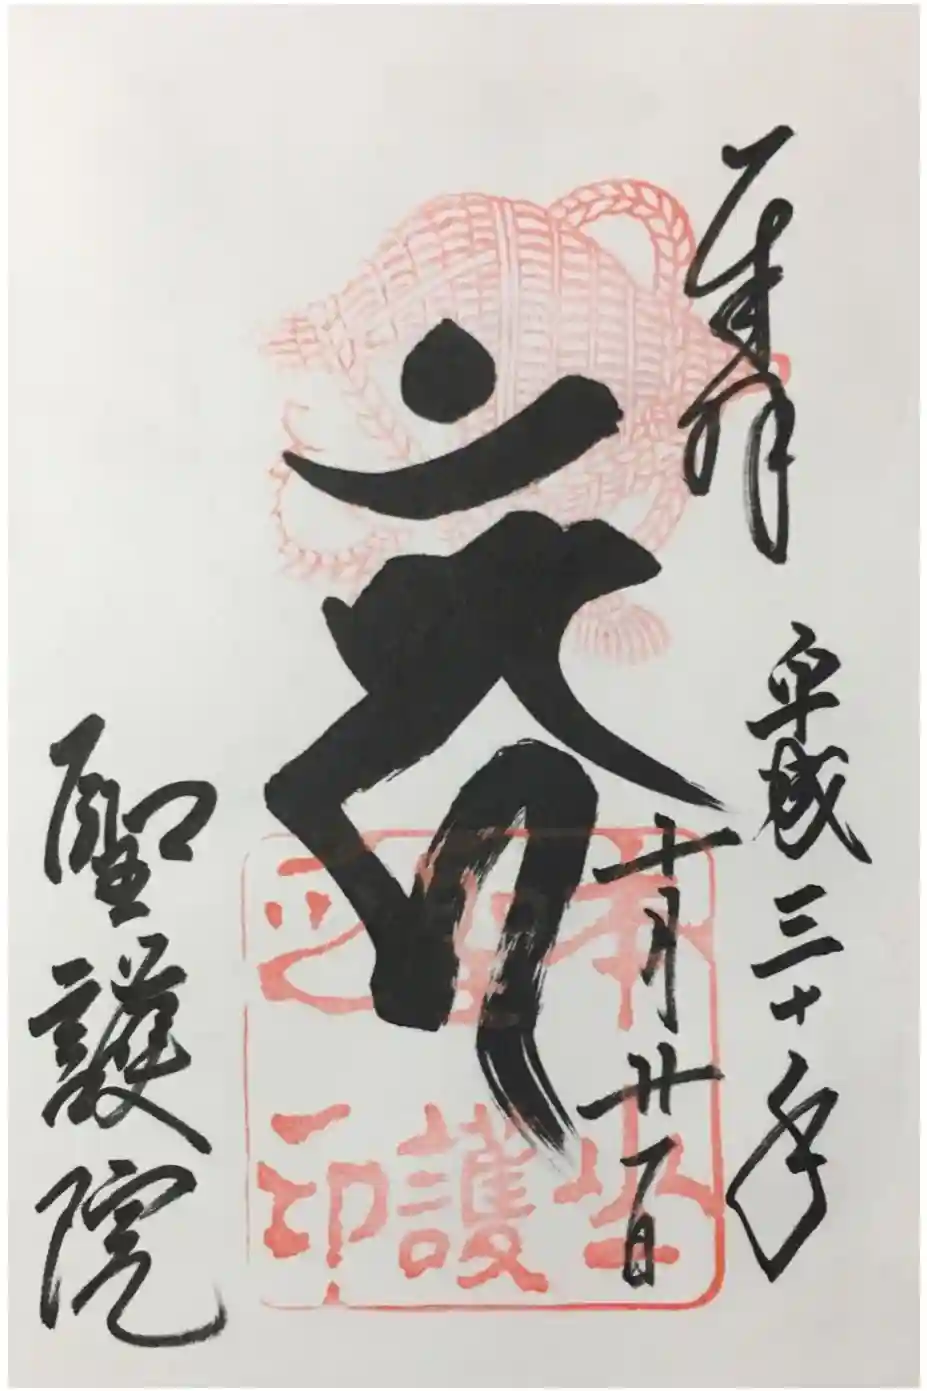 奉拝
平成三十年
十月廿一日
聖護
之印
聖護院